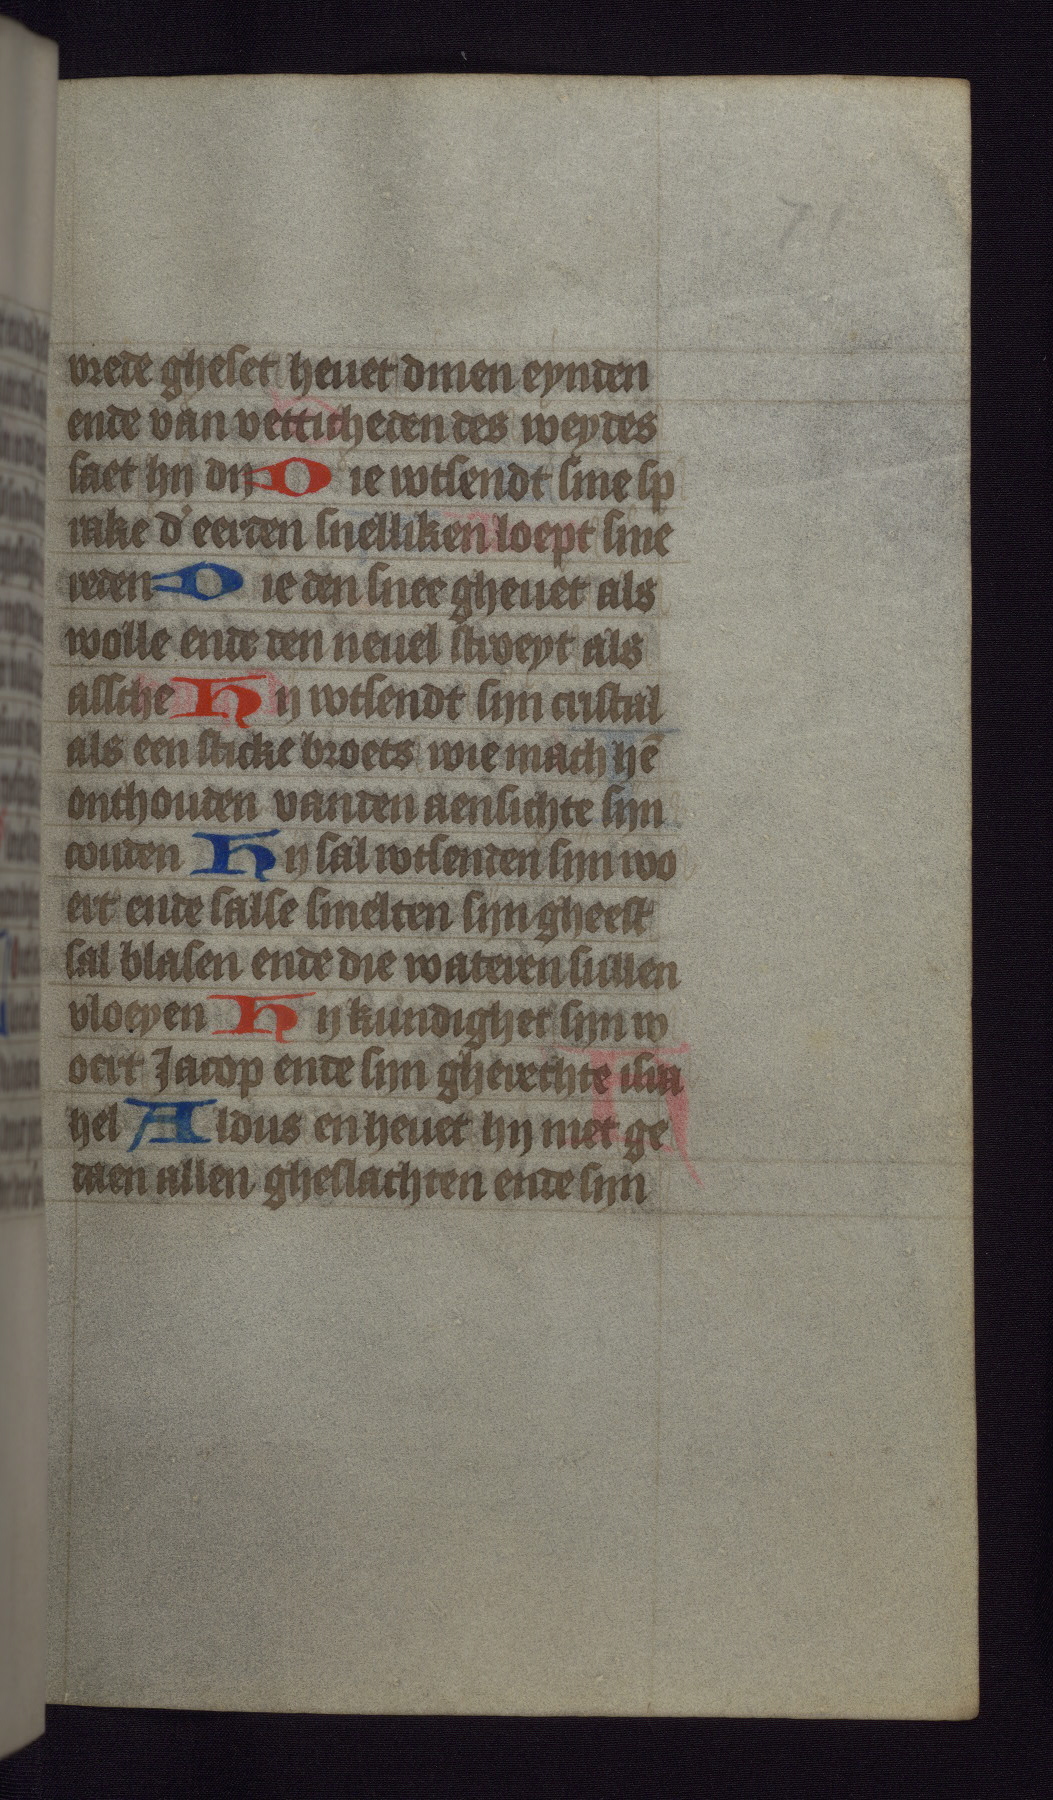 71
vrede gheset heuet dinen eynden
ende van vetticheden des weydes
saet hij dij Die wtsendt sine sp
rake d' eerden snelliken loept sine
reden Die den snee gheuet als
wolle ende den neuel stroeyt als
assche Hij wtsendt sijn cristal
als een sticke broets wie mach hē
onthouden vanden aensichte sijn
couden Hij sal wtsenden sijn wo
ert ende salse smelten sijn gheest
sal blasen ende die wateren sullen
vloeyen Hij kundighet sijn w
oert Jacop ende sijn gherechte isra
hel Aldus en heuet hij niet ge
daen allen gheslachten ende sijn